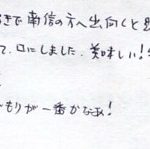 きで南信の方へ出向くと
て、口にしました。美味しい!
もりが一番かなぁ!